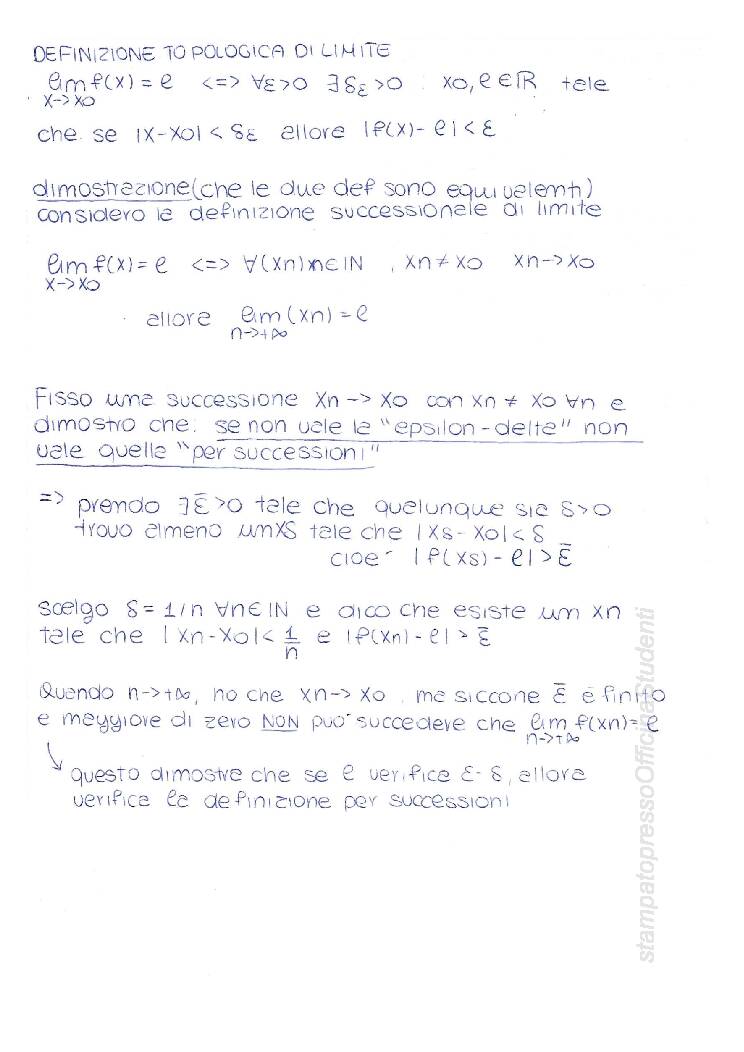 DEFINIZIONE TOPOLOGICA DI LIMITE
lim f(x) = l <=> ∀ε>0 ∃ δε >0 : x0, l ∈ ℝ tale
x->x0
che se |x-x0| < δε allora |f(x)- l| < ε
dimostrazione (che le due def sono equivalenti)
considero la definizione successionale di limite
lim f(x) = l <=> ∀(xn)n∈ℕ , xn ≠ x0 xn->x0
x->x0
allora lim (xn) = l
n->+∞
Fisso una successione xn -> x0 con xn ≠ x0 ∀n e
dimostro che: se non vale la "epsilon-delta" non
vale quella "per successioni"
=> prendo ∃ε̄>0 tale che qualunque sia δ>0
trovo almeno un xδ tale che |xδ- x0|< δ
cioe' |f(xδ)- l| > ε̄
scelgo δ = 1/n ∀n∈ℕ e dico che esiste un xn
tale che |xn-x0|< 1/n e |f(xn)-l| > ε̄
Quando n->+∞, ho che xn-> x0, ma siccone ε̄ é finito
e maggiore di zero NON puo' succedere che lim f(xn)= l
n->+∞
questo dimostra che se l verifica ε-δ, allora
verifica la definizione per successioni
stampatopressoOfficinaStudenti